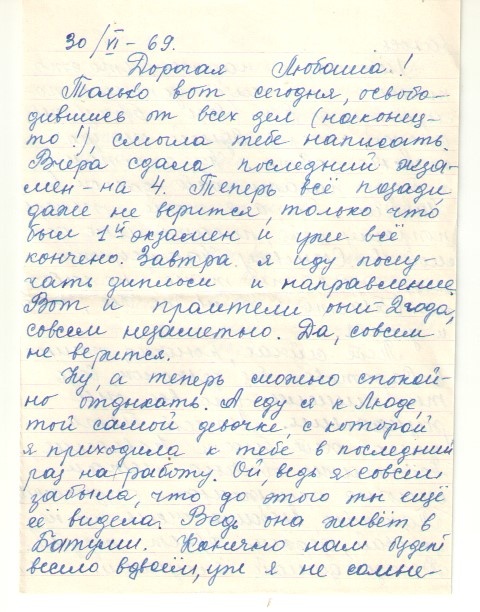 30/VI – 69.
Дорогая Любаша!
Только вот сегодня, освобо-
дившись от всех дел (наконец-
то!), смогла тебе написать.
Вчера сдала последний экза-
мен – на 4. Теперь всё позади
даже не верится, только что
был 1й экзамен и уже всё
кончено. Завтра я иду полу-
чать диплом и направление.
Вот и пролетели они – 2 года,
совсем незаметно. Да, совсем
не верится.
Ну, а теперь можно спокой-
но отдыхать. А еду я к Люде,
той самой девочке, с которой
я приходила к тебе в последний
раз на работу. Ой, ведь я совсем
забыла, что до этого ты ещё
её видела. Ведь она живёт в
Батуми. Конечно нам будет
весело вдвоём, уж я не сомне-